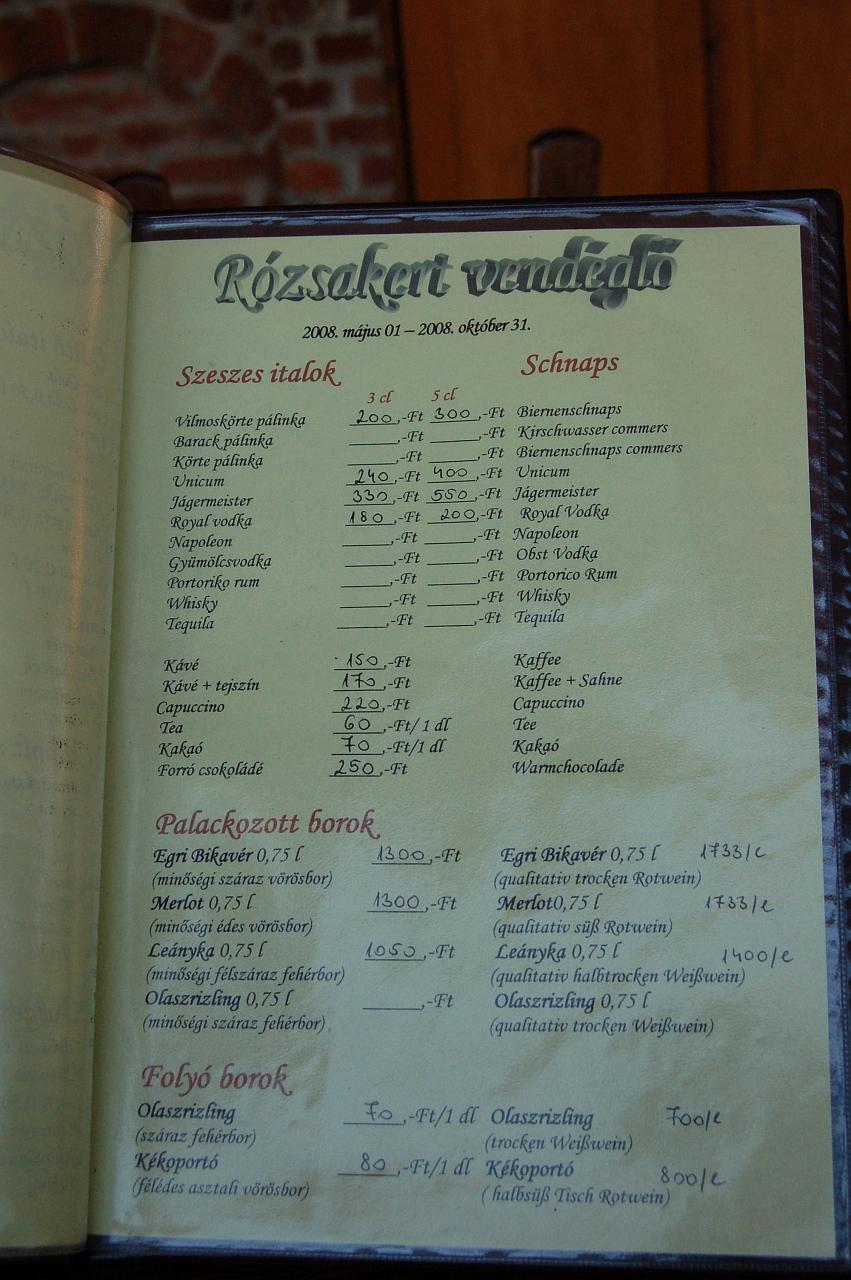 Rózsakert vendéglő
2008. május 01 – 2008. október 31.
Szeszes italok Schnaps
3 cl 5 cl
Vilmoskörte pálinka 200,-Ft 300,-Ft Biernenschnaps
Barack pálinka ______,-Ft ______,-Ft Kirschwasser commers
Körte pálinka ______,-Ft ______,-Ft Biernenschnaps commers
Unicum 240,-Ft 400,-Ft Unicum
Jägermeister 330,-Ft 550,-Ft Jägermeister
Royal vodka 180,-Ft 200,-Ft Royal Vodka
Napoleon ______,-Ft ______,-Ft Napoleon
Gyümölcsvodka ______,-Ft ______,-Ft Obst Vodka
Portoriko rum ______,-Ft ______,-Ft Portorico Rum
Whisky ______,-Ft ______,-Ft Whisky
Tequila ______,-Ft ______,-Ft Tequila
Kávé 150,-Ft Kaffee
Kávé + tejszín 170,-Ft Kaffee + Sahne
Capuccino 220,-Ft Capuccino
Tea 60,-Ft/ 1 dl Tee
Kakaó 70,-Ft/1 dl Kakaó
Forró csokoládé 250,-Ft Warmchocolade
Palackozott borok
Egri Bikavér 0,75 l 1300,-Ft Egri Bikavér 0,75 l 1733/l
(minőségi száraz vörösbor) (qualitativ trocken Rotwein)
Merlot 0,75 l 1300,-Ft Merlot0,75 l 1733/l
(minőségi édes vörösbor) (qualitativ süß Rotwein)
Leányka 0,75 l 1050,-Ft Leányka 0,75 l 1400/l
(minőségi félszáraz fehérbor) (qualitativ halbtrocken Weißwein)
Olaszrizling 0,75 l ______,-Ft Olaszrizling 0,75 l
(minőségi száraz fehérbor) (qualitativ trocken Weißwein)
Folyó borok
Olaszrizling 70,-Ft/1 dl Olaszrizling 700/l
(száraz fehérbor) (trocken Weißwein)
Kékoportó 80,-Ft/1 dl Kékoportó 800/l
(félédes asztali vörösbor) ( halbsüß Tisch Rotwein)